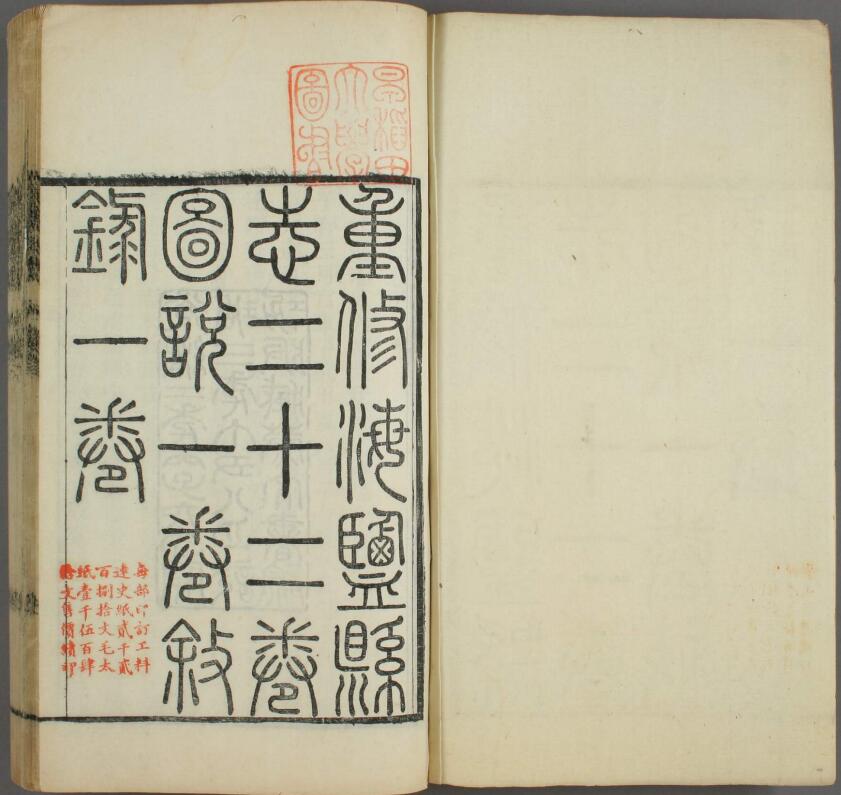 早稻田
大學
圖書
重修海鹽縣
志二十二卷
圖說一卷敘
錄一卷
每部印訂工料
連史紙貳千貳
百捌拾文毛太
紙壹千伍百肆
拾文售價續印